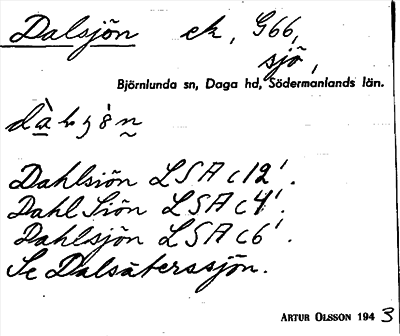 Dalsjön ek, G66,
sjö,
Björnlunda sn, Daga hd, Södermanlands län.
Dahlsiön LSA c12'.
Dahl Siön LSA c4'.
Dahlsjön LSA c6'.
Se Dalsäterssjön.
ARTUR OLSSON 1943